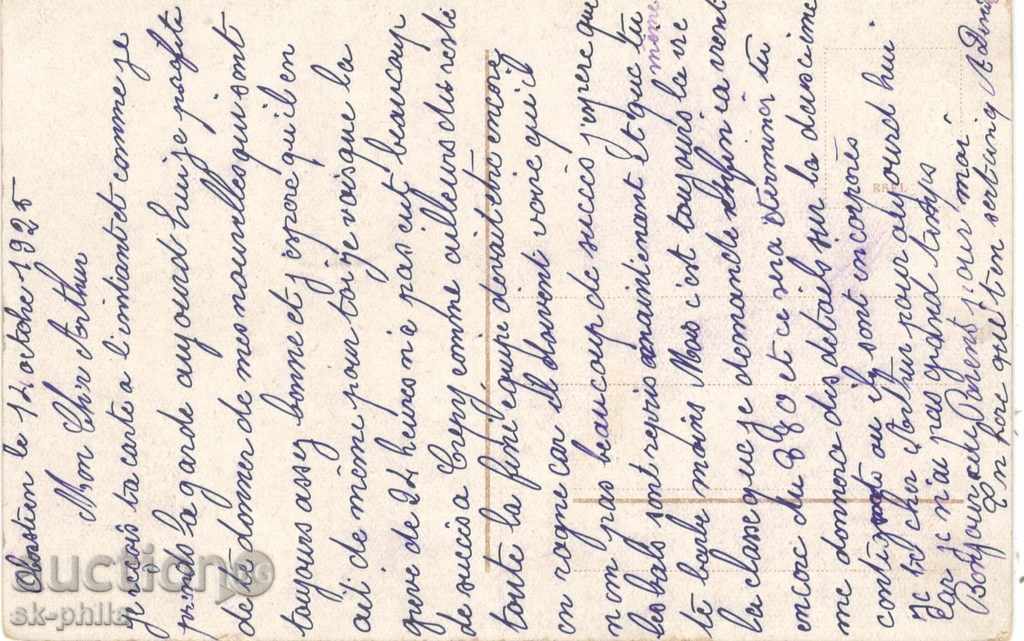 le 12 octobre 1925
Mon Cher Arthur
Je reçois ta carte a l'instant et comme je
prends la garde aujourd hui je profite
de te donner de mes nouvelles qui sont
toujours assez bonne et j espere qu'il en
ait de même pour toi je vois que la
greve de 24 heures n'a pas eut beaucoup
de succès a Crepy comme ailleurs du reste
toute la fine équipe devait etre encore
en rogne car il doivent voire qu'il
n on pas beaucoup de succès j'espere que
les bals sont repris maintenant et que tu
te barbe moins Mais c'est toujours la vre
même
la classe que je demande enfin ca vient
encore du 280 et ce sera terminer tu
me donnera des details sur la deuxieme
contigent ou ils sont incorporés
Je te cher Arthur pour aujourd hui
Car je n'ai pas grand temps
Bonjour au Parents j'aur moi
Encore que t en
BREL
auction BG
sk-phila